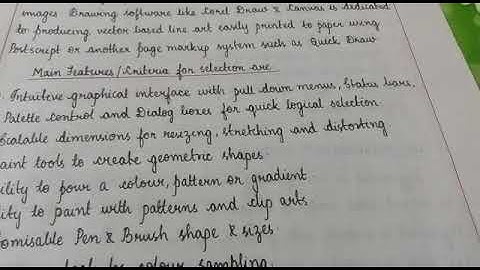 images Drawing software like Corel Draw & Canvas is dedicated
to producing vector based line art easily printed to paper using
Postscript or another page markup system such as Quick Draw
Main Features/Criteria for selection are
Intuitive graphical interface with pull down menus, Status bars,
Palette control and Dialog boxes for quick logical selection
Scalable dimensions for resizing, stretching and distorting
aint tools to create geometric shapes
ility to pour a colour, pattern or gradient
ity to paint with patterns and clip arts
tomisable Pen & Brush shape & sizes
tool for colour sampling